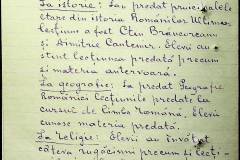 La istorie: S'au predat principalele
etape din istoria Românilor. Ultima
lecțiune a fost Ctin Brancoveanu
și Dimitrie Cantemir. Elevii au
știut lecțiunea predată precum
și materia anterioară.
La geografie: S'a predat Geografia
României lecțiunile predate la
cursul de limba română. Elevii
cunosc materia predată.
La religie: Elevii au învățat
câteva rugăciuni precum și lecți-